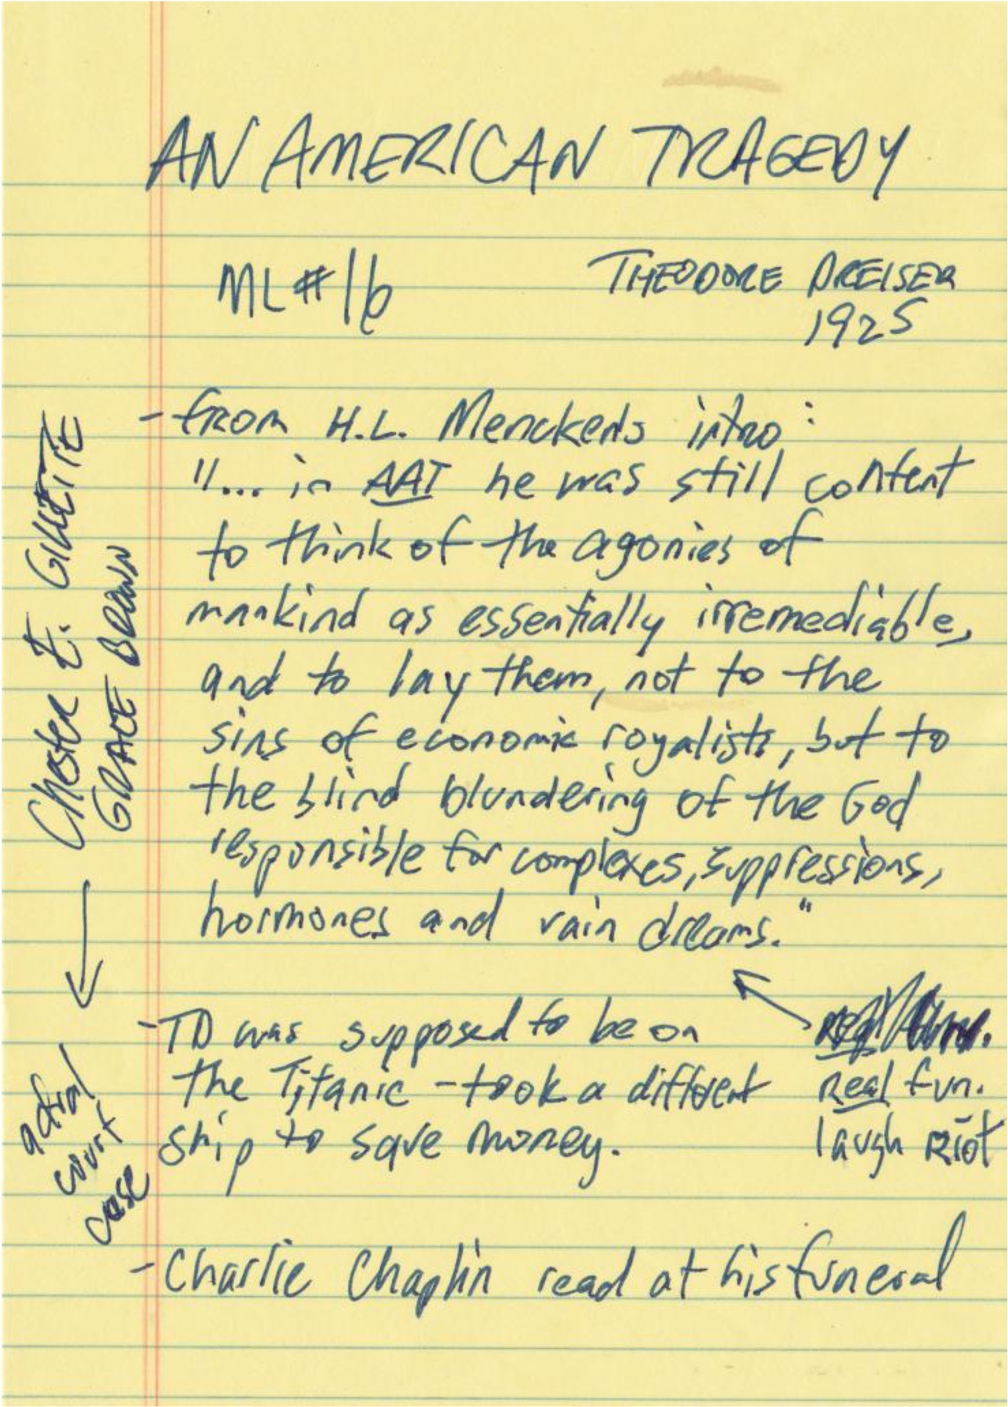 AN AMERICAN TRAGEDY
ML #16
THEODORE DREISER
1925
- from H.L. Mencken's intro:
"... in AAT he was still content
to think of the agonies of
mankind as essentially irremediable,
and to lay them, not to the
sins of economic royalists, but to
the blind blundering of the God
responsible for complexes, suppressions,
hormones and vain dreams."
- TD was supposed to be on
the Titanic - took a different
ship to save money.
real fun.
laugh riot
- Charlie Chaplin read at his funeral
Chester E. GILLETTE
GRACE BROWN
actual
court
case